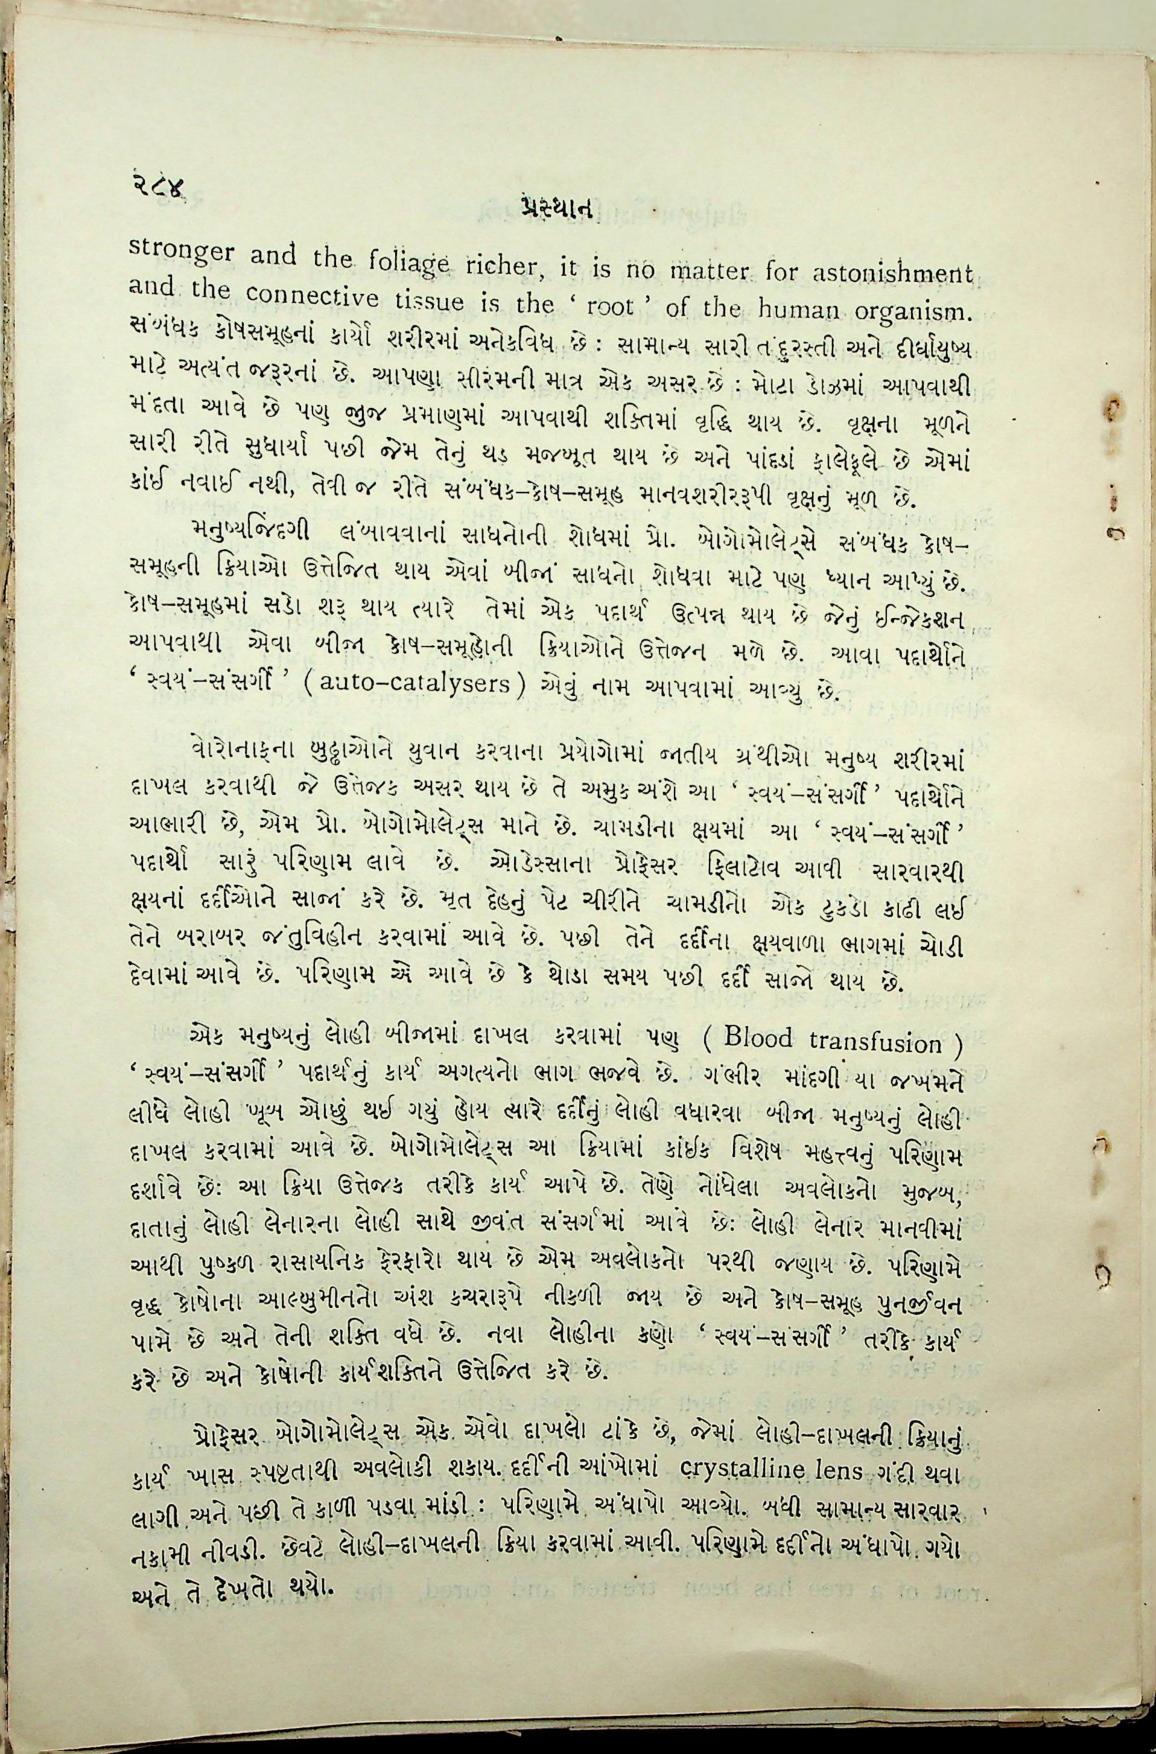 ૨૮૪
પ્રસ્થાન
stronger and the foliage richer, it is no matter for astonishment
and the connective tissue is the ‘ root ’ of the human organism.
સંબંધક કોષસમૂહનાં કાર્યો શરીરમાં અનેકવિધ છે : સામાન્ય સારી તંદુરસ્તી અને દીર્ઘાયુષ્ય
માટે અત્યંત જરૂરનાં છે. આપણા સીરમની માત્ર એક અસર છે : મોટા ડોઝમાં આપવાથી
મંદતા આવે છે પણ જુજ પ્રમાણમાં આપવાથી શક્તિમાં વૃદ્ધિ થાય છે. વૃક્ષના મૂળને
સારી રીતે સુધાર્યા પછી જેમ તેનું થડ મજબૂત થાય છે અને પાંદડાં ફાલેફૂલે છે એમાં
કાંઈ નવાઈ નથી, તેવી જ રીતે સંબંધક–કોષ–સમૂહ માનવશરીરરૂપી વૃક્ષનું મૂળ છે.
મનુષ્યજિંદગી લંબાવવાનાં સાધનોની શોધમાં પ્રો. બોગોમોલેટ્સે સંબંધક કોષ–
સમૂહની ક્રિયાઓ ઉત્તેજિત થાય એવાં બીજાં સાધનો શોધવા માટે પણ ધ્યાન આપ્યું છે.
કોષ–સમૂહમાં સડો શરૂ થાય ત્યારે તેમાં એક પદાર્થ ઉત્પન્ન થાય છે જેનું ઈન્જેકશન
આપવાથી એવા બીજા કોષ–સમૂહોની ક્રિયાઓને ઉત્તેજન મળે છે. આવા પદાર્થોને
‘ સ્વયં–સંસર્ગી ’ ( auto–catalysers ) એવું નામ આપવામાં આવ્યું છે.
વોરોનાફના બુઢ્ઢાઓને યુવાન કરવાના પ્રયોગોમાં જાતીય ગ્રંથીઓ મનુષ્ય શરીરમાં
દાખલ કરવાથી જે ઉત્તેજક અસર થાય છે તે અમુક અંશે આ ‘ સ્વયં–સંસર્ગી ’ પદાર્થોને
આભારી છે, એમ પ્રો. બોગોમોલેટ્સ માને છે. ચામડીના ક્ષયમાં આ ‘ સ્વયં–સંસર્ગી ’
પદાર્થો સારું પરિણામ લાવે છે. ઓડેસ્સાના પ્રોફેસર ફિલાટોવ આવી સારવારથી
ક્ષયનાં દર્દીઓને સાજાં કરે છે. મૃત દેહનું પેટ ચીરીને ચામડીનો એક ટુકડો કાઢી લઈ
તેને બરાબર જંતુવિહીન કરવામાં આવે છે. પછી તેને દર્દીના ક્ષયવાળા ભાગમાં ચોડી
દેવામાં આવે છે. પરિણામ એ આવે છે કે થોડા સમય પછી દર્દી સાજો થાય છે.
એક મનુષ્યનું લોહી બીજામાં દાખલ કરવામાં પણ ( Blood transfusion )
‘ સ્વયં–સંસર્ગી ’ પદાર્થનું કાર્ય અગત્યનો ભાગ ભજવે છે. ગંભીર માંદગી યા જખમને
લીધે લોહી ખૂબ ઓછું થઈ ગયું હોય ત્યારે દર્દીનું લોહી વધારવા બીજા મનુષ્યનું લોહી
દાખલ કરવામાં આવે છે. બોગોમોલેટ્સ આ ક્રિયામાં કાંઈક વિશેષ મહત્ત્વનું પરિણામ
દર્શાવે છેઃ આ ક્રિયા ઉત્તેજક તરીકે કાર્ય આપે છે. તેણે નોંધેલા અવલોકનો મુજબ,
દાતાનું લોહી લેનારના લોહી સાથે જીવંત સંસર્ગમાં આવે છેઃ લોહી લેનાર માનવીમાં
આથી પુષ્કળ રાસાયનિક ફેરફારો થાય છે એમ અવલોકનો પરથી જણાય છે. પરિણામે
વૃદ્ધ કોષોના આલ્બુમીનનો અંશ કચરારૂપે નીકળી જાય છે અને કોષ–સમૂહ પુનર્જીવન
પામે છે અને તેની શક્તિ વધે છે. નવા લોહીના કણો ‘ સ્વયં–સંસર્ગી ’ તરીકે કાર્ય
કરે છે અને કોષોની કાર્યશક્તિને ઉત્તેજિત કરે છે.
પ્રોફેસર બોગોમોલેટ્સ એક એવો દાખલો ટાંકે છે, જેમાં લોહી–દાખલની ક્રિયાનું
કાર્ય ખાસ સ્પષ્ટતાથી અવલોકી શકાય. દર્દીની આંખોમાં crystalline lens ગંદી થવા
લાગી અને પછી તે કાળી પડવા માંડી : પરિણામે અંધાપો આવ્યો. બધી સામાન્ય સારવાર
નકામી નીવડી. છેવટે લોહી–દાખલની ક્રિયા કરવામાં આવી. પરિણામે દર્દીનો અંધાપો ગયો
અને તે દેખતો થયો.